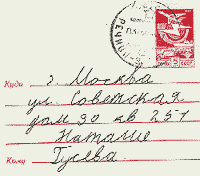 Куда г. Москва
ул. Советская
дом 30 кв 251
Наташе
Кому Гусева